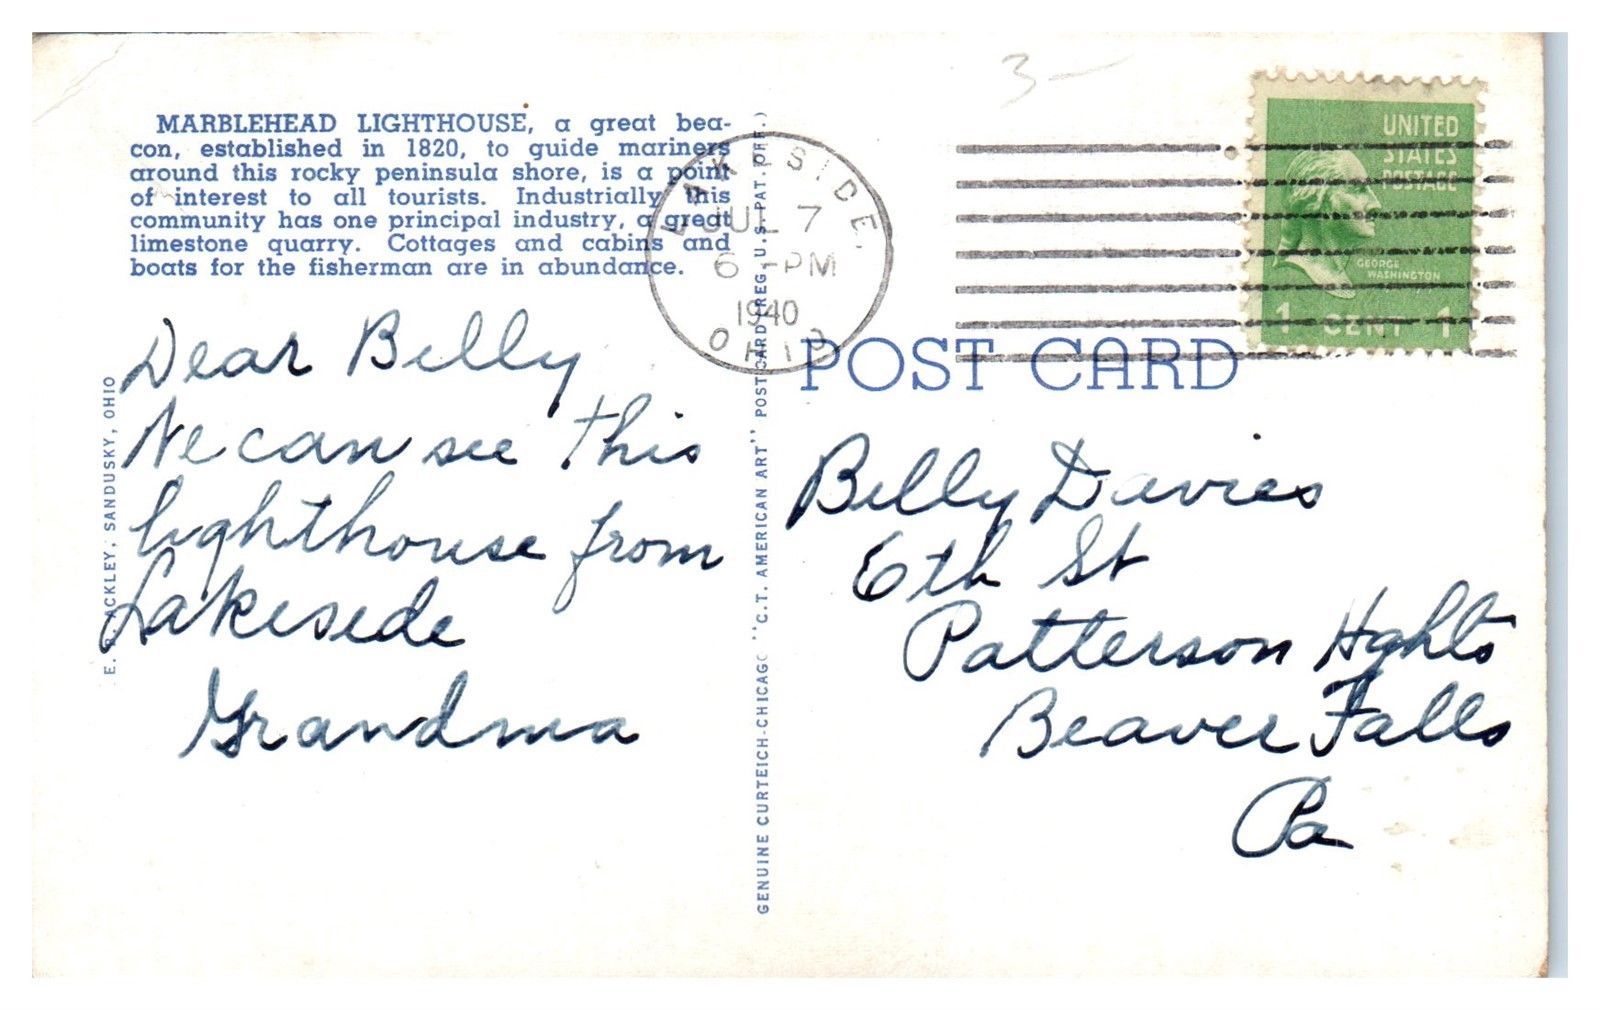 3 -
MARBLEHEAD LIGHTHOUSE, a great bea-
con, established in 1820, to guide mariners
around this rocky peninsula shore, is a point
of interest to all tourists. Industrially this
community has one principal industry, a great
limestone quarry. Cottages and cabins and
boats for the fisherman are in abundance.
E. B. ACKLEY, SANDUSKY, OHIO
Dear Billy
We can see this
lighthouse from
Lakeside
Grandma
GENUINE CURTEICH-CHICAGO "C.T. AMERICAN ART" POST CARD (REG. U.S. PAT. OFF.)
LAKESIDE,
JUL 7
6 - PM
1940
OHIO
UNITED
STATES
POSTAGE
GEORGE
WASHINGTON
1 CENT 1
POST CARD
Billy Davies
6th St
Patterson Hghts
Beaver Falls
Pa